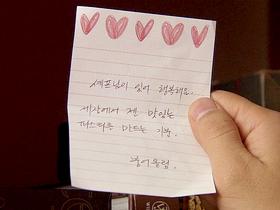 셰프님이 있어 행복해요.
세상에서 젤 맛있는
파스타를 만드는 기분.
붕어올림.